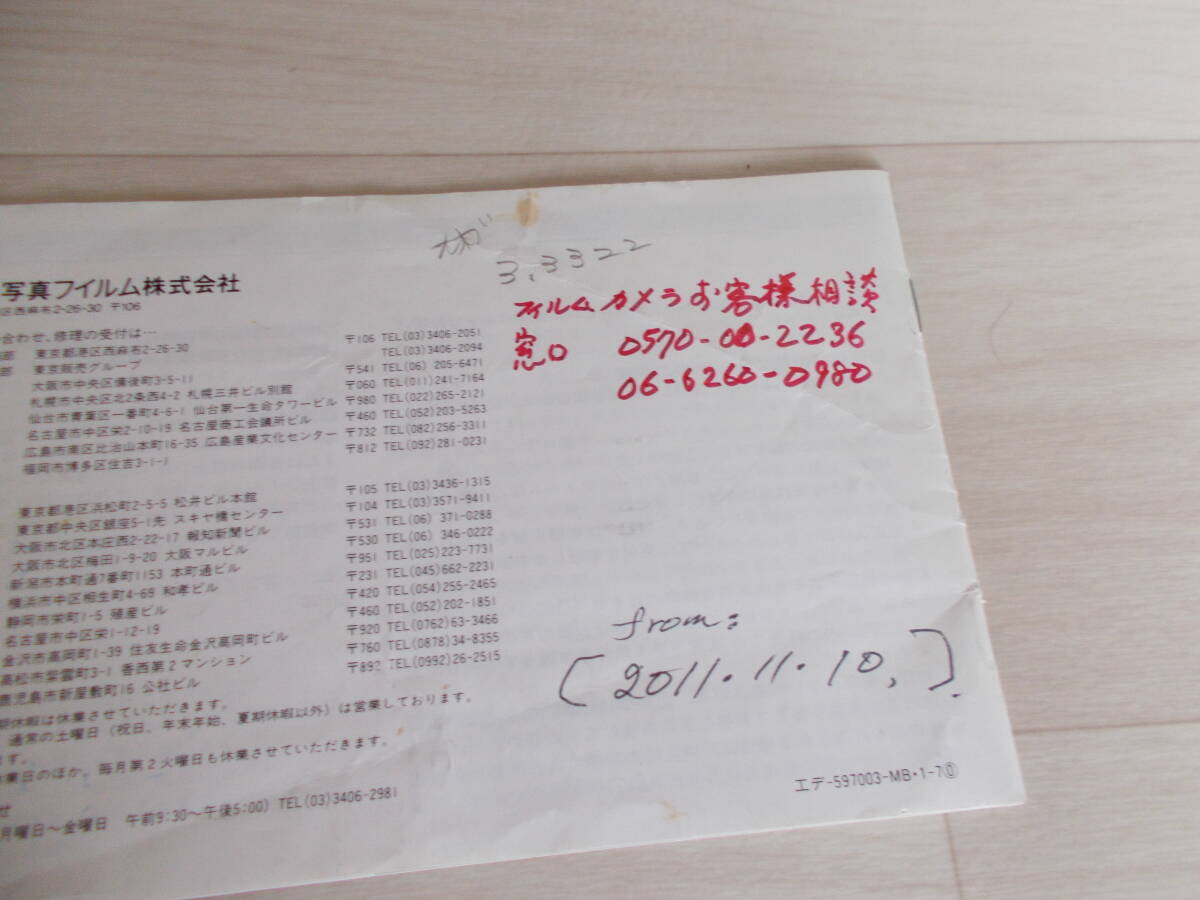 写真フイルム株式会社
区西麻布2-26-30 〒106
合わせ、修理の受付は…
部 東京都港区西麻布2-26-30 〒106 TEL(03)3406-2051
部 東京販売グループ TEL(03)3406-2094
大阪市中央区備後町3-5-11 〒541 TEL(06) 205-6471
札幌市中央区北2条西4-2 札幌三井ビル別館 〒060 TEL(011)241-7164
仙台市青葉区一番町4-6-1 仙台第一生命タワービル 〒980 TEL(022)265-2121
名古屋市中区栄2-10-19 名古屋商工会議所ビル 〒460 TEL(052)203-5263
広島市南区比治山本町16-35 広島産業文化センター 〒732 TEL(082)256-3311
福岡市博多区住吉3-1-1 〒812 TEL(092)281-0231
東京都港区浜松町2-5-5 松井ビル本館 〒105 TEL(03)3436-1315
東京都中央区銀座5-1先 スキヤ橋センター 〒104 TEL(03)3571-9411
大阪市北区本庄西2-22-17 報知新聞ビル 〒531 TEL(06) 371-0288
大阪市北区梅田1-9-20 大阪マルビル 〒530 TEL(06) 346-0222
新潟市本町通7番町1153 本町通ビル 〒951 TEL(025)223-7731
横浜市中区相生町4-69 和孝ビル 〒231 TEL(045)662-2231
静岡市栄町1-5 殖産ビル 〒420 TEL(054)255-2465
名古屋市中区栄1-12-19 〒460 TEL(052)202-1851
金沢市高岡町1-39 住友生命金沢高岡町ビル 〒920 TEL(0762)63-3466
高松市紫雲町3-1 香西第2マンション 〒760 TEL(0878)34-8355
鹿児島市新屋敷町16 公社ビル 〒892 TEL(0992)26-2515
期休暇は休業させていただきます。
通常の土曜日(祝日、年末年始、夏期休暇以外)は営業しております。
ます。
休業日のほか、毎月第2火曜日も休業させていただきます。
せ
月曜日～金曜日 午前9:30～午後5:00) TEL(03)3406-2981
3,3322
フィルムカメラお客様相談
窓口 0570-00-2236
06-6260-0980
from:
[2011.11.10,].
エデ-597003-MB・1-7⓪